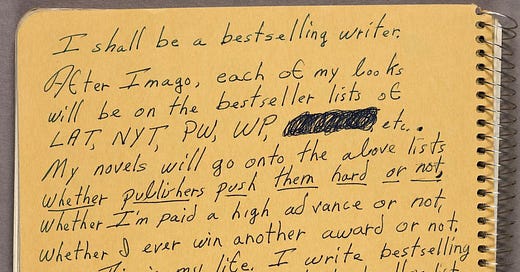 I shall be a bestselling writer.
After Imago, each of my books
will be on the bestseller lists of
LAT, NYT, PW, WP, etc..
My novels will go onto the above lists
whether publishers push them hard or not,
whether I'm paid a high advance or not,
whether I ever win another award or not.
This is my life. I write bestselling